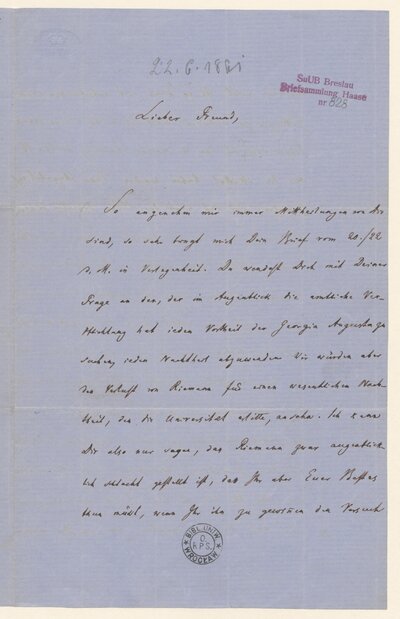 22. 6. 1881
SuUB Breslau
Briefsammlung Haase
nr 828
Lieber Freund,
So angenehm mir immer Mittheilungen von Dir
sind, so sehr bringt mich Dein Brief vom 20./22
d. M. in Verlegenheit. Du wendest Dich mit Deiner
Frage an den, der im Augenblick die amtliche Ver-
pflichtung hat jeden Vortheil der Georgia Augusta zu
suchen, jeden Nachtheil abzuwenden. Wir würden aber
den Verlust von Riemann für einen wesentlichen Nach-
theil, den die Universität erlitte, ansehn. Ich kann
Dir also nur sagen, daß Riemann zwar augenblick-
lich schlecht gestellt ist, daß Ihr aber Euer Bestes
thun müßt, wenn Ihr ihn zu gewinnen den Versuch
BIBL. UNIW.
WROCŁAW